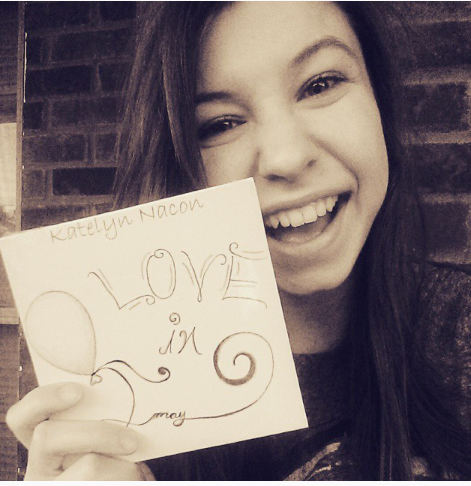 Katelyn Nacon
LOVE
in
may